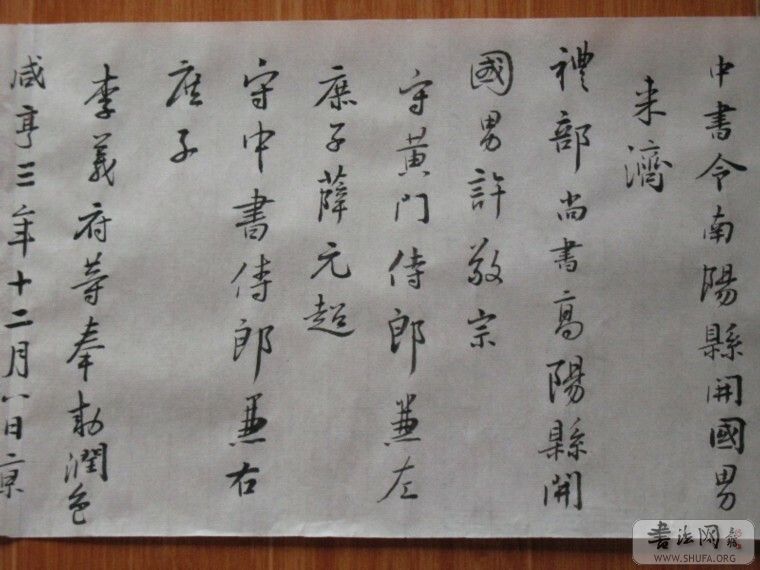 中書令南陽縣開國男
来濟
禮部尚書高陽縣開
國男許敬宗
守黄门侍郎兼左
庶子薛元超
守中書侍郎兼右
庶子
李義府等奉勅潤色
咸亨三年十二月八日京
書法网
WWW.SHUFA.ORG